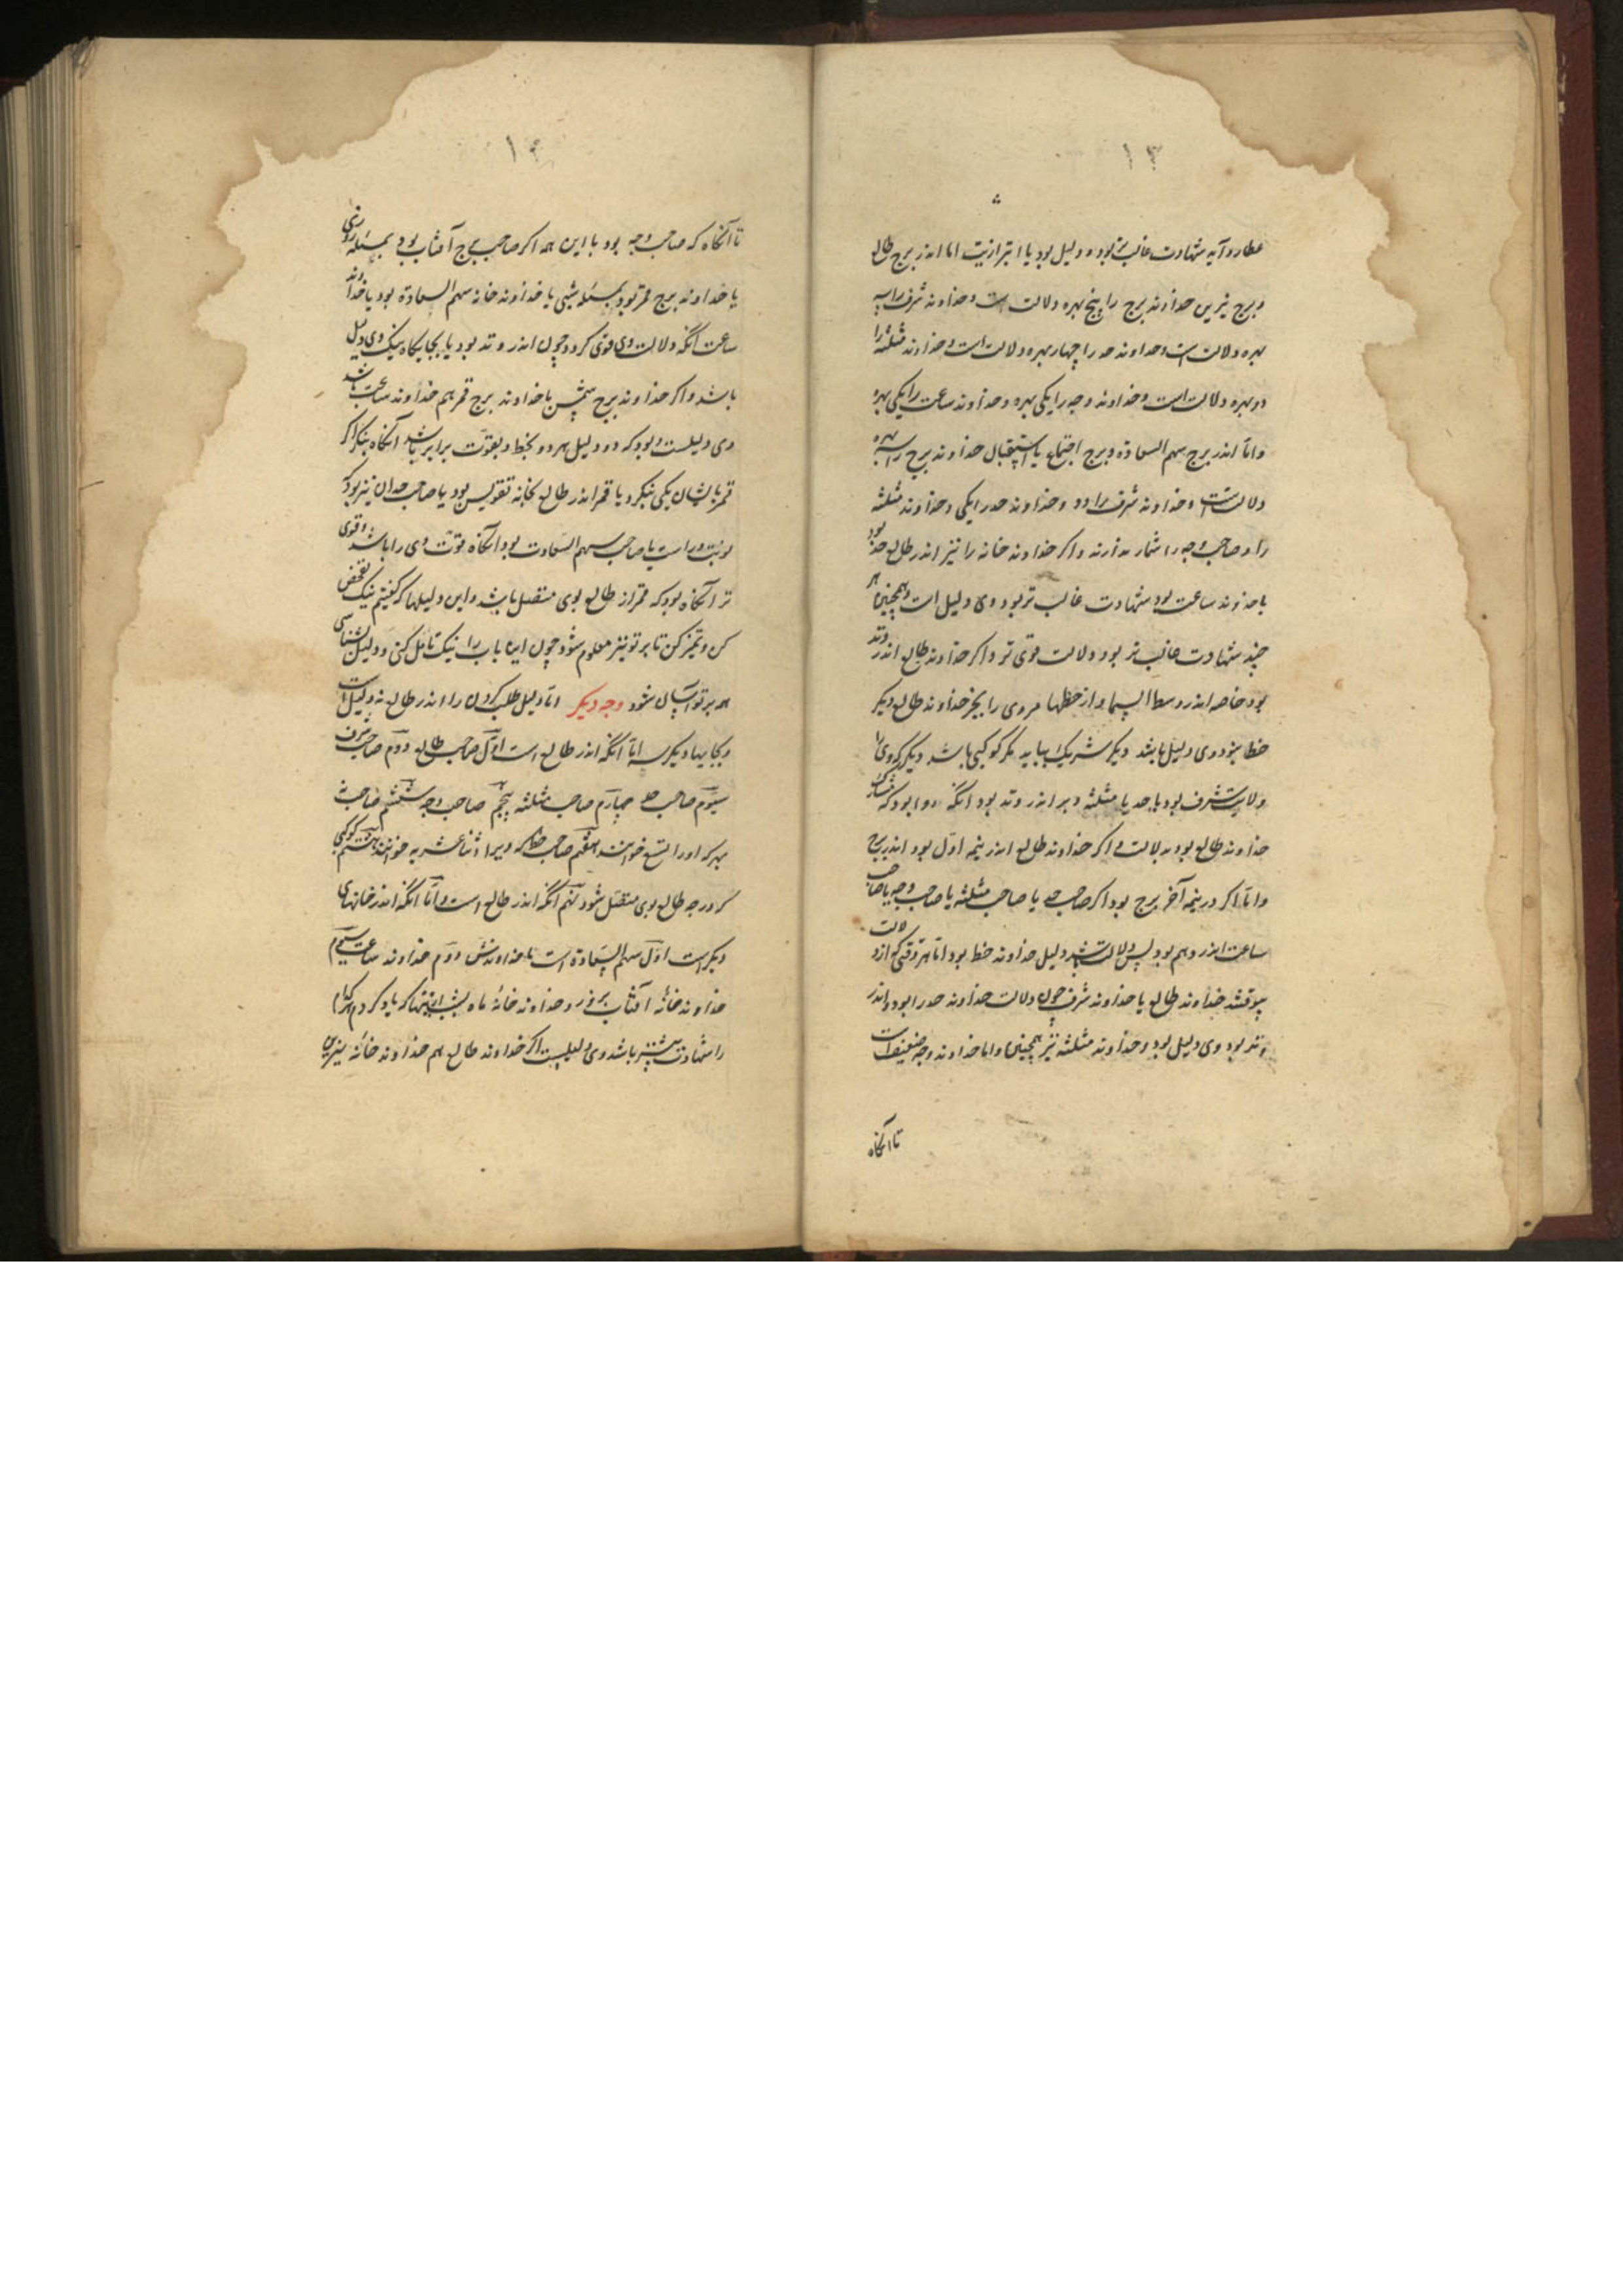 ۱۳
عطارد آید شهادت غالب تر بود و دلیل بود یا ابتزازیت اما اندر برج طالع
و برج نیرین خداوند برج را پنج بهره دلالت است و خداوند شرف را سه
بهره دلالت است و خداوند حد را چهار بهره دلالت است و خداوند مثلثه را
دو بهره دلالت است و خداوند وجه را یکی بهره و خداوند ساعت را یکی بهره
و اما اندر برج سهم السعادة و برج اجتماع یا استقبال خداوند برج را سه بهره
دلالتست و خداوند شرف را دو و خداوند حد را یکی و خداوند مثلثه
را و صاحب وجه را شمار ندارند و اگر خداوند خانه را نیز اندر طالع حد بود
یا خداوند ساعت بود شهادت غالب تر بود و وی دلیل است و همچنین هر
چند شهادت غالب تر بود دلالت قوی تر و اگر خداوند طالع اندر وتد
بود خاصه اندر وسط السما و از حظها مر وی را بجز خداوند طالع دیگر
حظ نبود وی دلیل باشد دیگر شریک بباید مگر کوکبی باشد دیگر که وی را
ولایت شرف بود یا حد یا مثلثه و بر اندر وتد بود انگه روا بود که
خداوند طالع بود بدلالت و اگر خداوند طالع اندر نیمه اول بود اندر برج
و اما اگر در نیمه آخر برج بود اگر صاحب حد یا صاحب مثلثه یا صاحب وجه یا صاحب
ساعت اندر وهم بود پس دلالت دلیل خداوند حظ بود اما هر وقتی که از دلالت
بیوفتد خداوند طالع یا خداوند شرف چون دلالت خداوند حد را بود و اندر
وتد بود وی دلیل بود و خداوند مثلثه نیز همچنین و اما خداوند وجه ضعیفست
تا انگاه
۱۴
تا آنگاه که صاحب وجه بود با این همه اگر صاحب برج آفتاب بود بمسئله روزی
یا خداوند برج قمر بود بمسئله شبی یا خداوند خانه سهم السعادة بود یا خداوند
ساعت انگه دلالت وی قوی گردد چون اندر وتد بود یا بجایگاه نیک وی دلیل
باشد و اگر خداوند برج شمس یا خداوند برج قمر هم خداوند ساعت باشد
وی دلیلست و بود که دو دلیل هر دو بحظ و بقوت برابر باشند انگاه بنگر اگر
قمر بایشان یکی بنگرد یا قمر اندر طالع بخانه تقویس بود یا صاحب حد ان نیز بود که
نوبت وراست یا صاحب سهم السعادت بود انگاه قوت وی را باشد و قوی
تر انگاه بود که قمر از طالع بوی متصل باشد و این دلیلها که گفتیم نیک تفحص
کن و تمیز کن تا بر تو نیز معلوم شود چون این باب را نیک تامل کنی و دلیل بشناسی
همه بر تو آسان شود وجه دیگر اما دلیل طلب کردن را اندر طالع نه دلیل است
و بجایها دیگر سه اما انگه اندر طالع است اول صاحب طالع دوم صاحب شرف
سیوم صاحب حد چهارم صاحب مثلثه پنجم صاحب وجه ششم صاحب نه
بهر که او را التسع خوانند هفتم صاحب حظ که ویرا اثنا عشریه خوانند هشتم کوکبی
که درجه طالع بوی متصل شود نهم انگه اندر طالع است و اما انگه اندر خانهای
دیگر است اول سهم السعادة است با خداوندش دوم خداوند ساعت سیوم
خداوند خانه آفتاب بروز و خداوند خانه ماه بشب ازینها که یاد کردم هر کدام
را شهادت بیشتر باشد وی دلیلست اگر خداوند طالع هم خداوند خانه نیرین